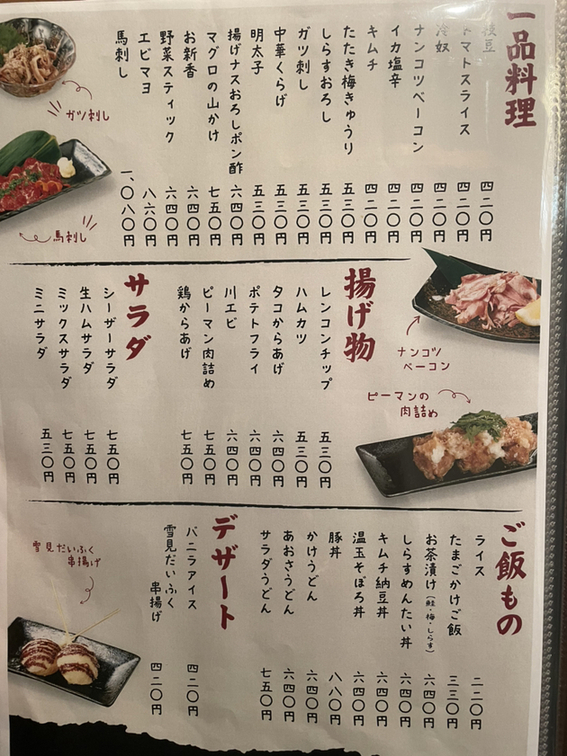 一品料理
枝豆 四二〇円
トマトスライス 四二〇円
冷奴 四二〇円
ナンコツベーコン 四二〇円
イカ塩辛 四二〇円
キムチ 四二〇円
たたき梅きゅうり 五三〇円
しらすおろし 五三〇円
ガツ刺し 五三〇円
中華くらげ 五三〇円
明太子 五三〇円
揚げナスおろしポン酢 六四〇円
マグロの山かけ 七五〇円
お新香 六四〇円
野菜スティック 六四〇円
エビマヨ 八六〇円
馬刺し 一、〇八〇円
ガツ刺し
馬刺し
ナンコツ
ベーコン
ピーマンの
肉詰め
揚げ物
レンコンチップ 五三〇円
ハムカツ 五三〇円
タコからあげ 六四〇円
ポテトフライ 六四〇円
川エビ 六四〇円
ピーマン肉詰め 七五〇円
鶏からあげ 七五〇円
サラダ
シーザーサラダ 七五〇円
生ハムサラダ 七五〇円
ミックスサラダ 七五〇円
ミニサラダ 五三〇円
ご飯もの
ライス 二二〇円
たまごかけご飯 三三〇円
お茶漬け(鮭・梅・しらす) 六四〇円
しらすめんたい丼 六四〇円
キムチ納豆丼 六四〇円
温玉そぼろ丼 六四〇円
豚丼 八八〇円
かけうどん 六四〇円
あおさうどん 六四〇円
サラダうどん 七五〇円
デザート
バニラアイス 四二〇円
雪見だいふく
串揚げ 四二〇円
雪見だいふく
串揚げ